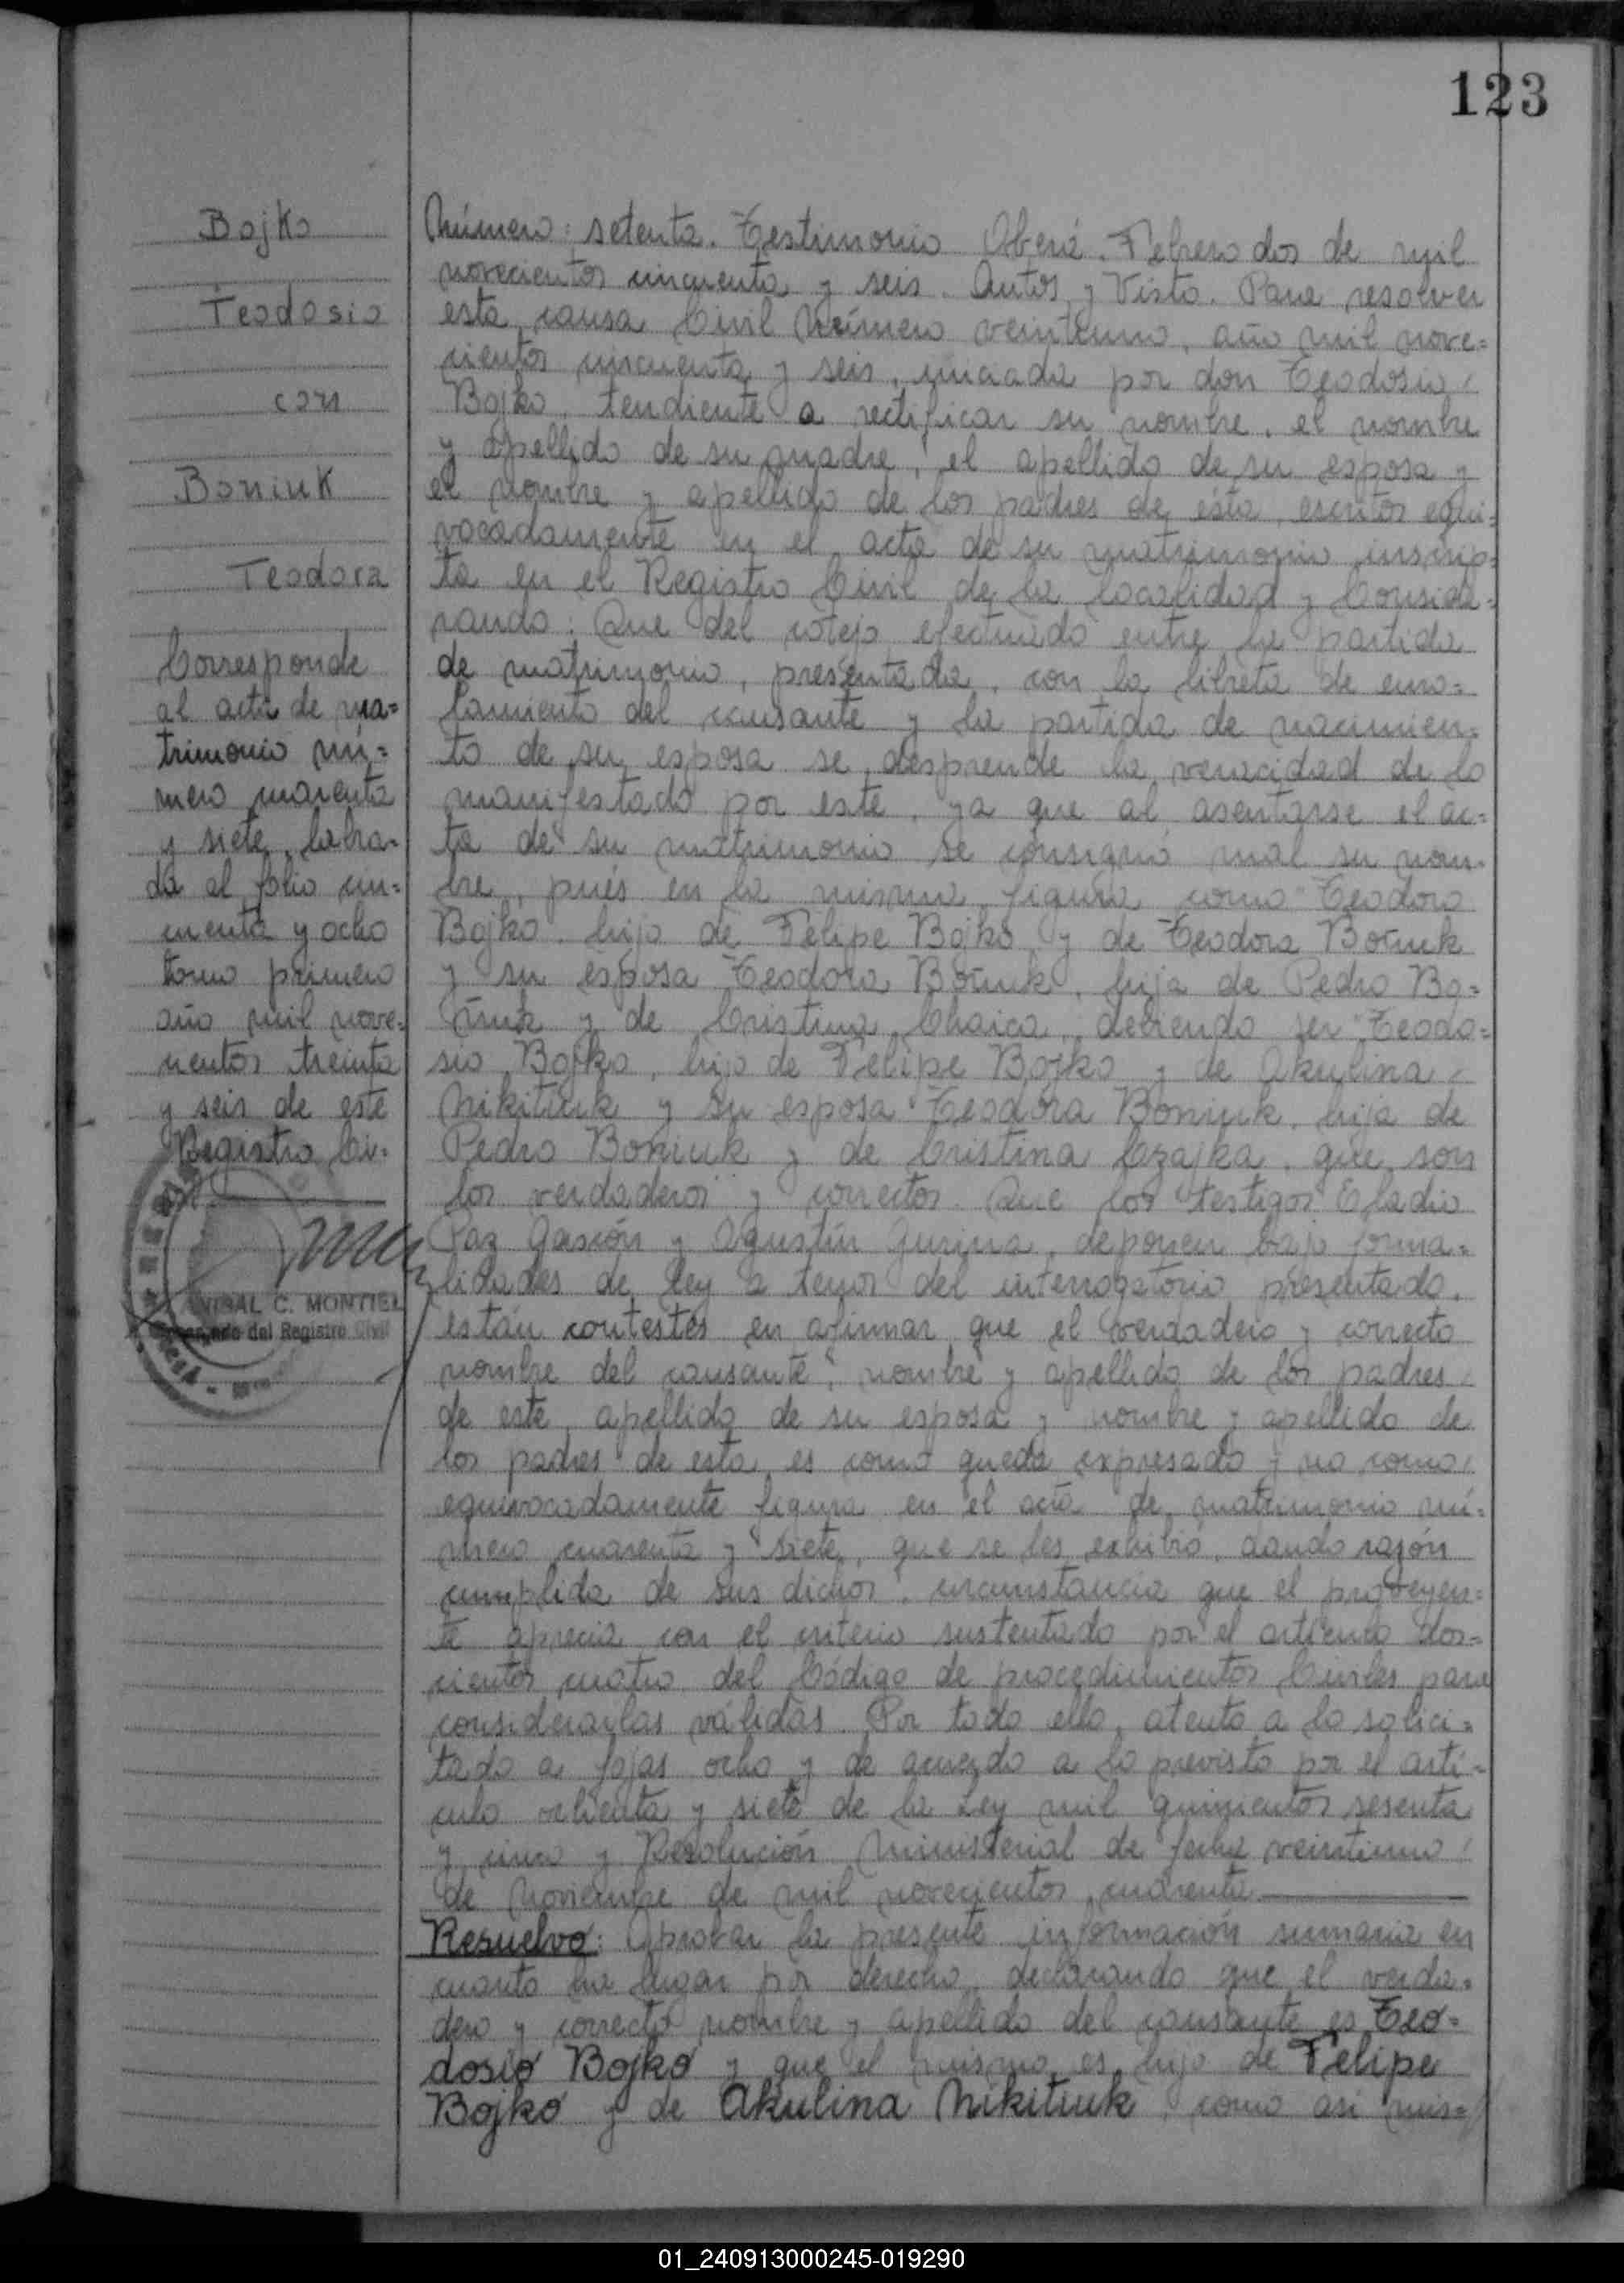 123
Bojko
Teodosio
con
Boniuk
Teodora
Corresponde
al acta de ma=
trimonio nú=
mero cuarenta
y siete, labra=
da al folio cin=
cuenta y ocho
tomo primero
año mil nove=
cientos treinta
y seis de este
Registro Ci=
ANIBAL C. MONTIEL
Encargado del Registro Civil
Número: setenta. Testimonio Oberá. Febrero dos de mil
novecientos cincuenta y seis. Autos y Visto. Para resolver
esta causa Civil Número veintiuno, año mil nove=
cientos cincuenta y seis, iniciada por don Teodosio
Bojko, tendiente a rectificar su nombre, el nombre
y apellido de su madre, el apellido de su esposa y
el nombre y apellido de los padres de ésta, escritos equi=
vocadamente en el acta de su matrimonio inscrip=
ta en el Registro Civil de la localidad y Conside=
rando: Que del cotejo efectuado entre la partida
de matrimonio, presentada, con la libreta de enro=
lamiento del causante y la partida de nacimien=
to de su esposa se desprende la veracidad de lo
manifestado por este, ya que al asentarse el ac=
ta de su matrimonio se consignó mal su nom=
bre, pués en la misma figura como "Teodoro
Bojko, hijo de Felipe Bojko y de Teodora Boñuk
y su esposa Teodora Boñuk, hija de Pedro Bo=
ñuk y de Cristina Chaica, debiendo ser "Teodo=
sio Bojko, hijo de Felipe Bojko y de Akulina
Nikitiuk y su esposa Teodora Boniuk, hija de
Pedro Boniuk y de Cristina Czajka, que son
los verdaderos y correctos. Que los testigos Eladio
Paz Gasión y Agustín Jurina, deponen bajo forma=
lidades de ley a tenor del interrogatorio presentado,
están contestes en afirmar que el verdadero y correcto
nombre del causante, nombre y apellido de los padres
de este, apellido de su esposa y nombre y apellido de
los padres de esta, es como queda expresado y no como
equivocadamente figura en el acta de matrimonio nú=
mero cuarenta y siete, que se les exhibió, dando razón
cumplida de sus dichos, circunstancia que el proveyen=
te aprecia con el criterio sustentado por el artículo dos=
cientos cuatro del Código de procedimientos Civiles para
considerarlas válidas. Por todo ello, atento a lo solici=
tado a fojas ocho y de acuerdo a lo previsto por el artí=
culo ochenta y siete de la Ley mil quinientos sesenta
y cinco y Resolución Ministerial de fecha veintiuno
de Noviembre de mil novecientos cuarenta
Resuelvo: Aprobar la presente información sumaria en
cuanto ha lugar por derecho, declarando que el verda=
dero y correcto nombre y apellido del causante es Teo=
dosio Bojko y que el mismo es hijo de Felipe
Bojko y de Akulina Nikitiuk, como asi mis=
01_240913000245-019290